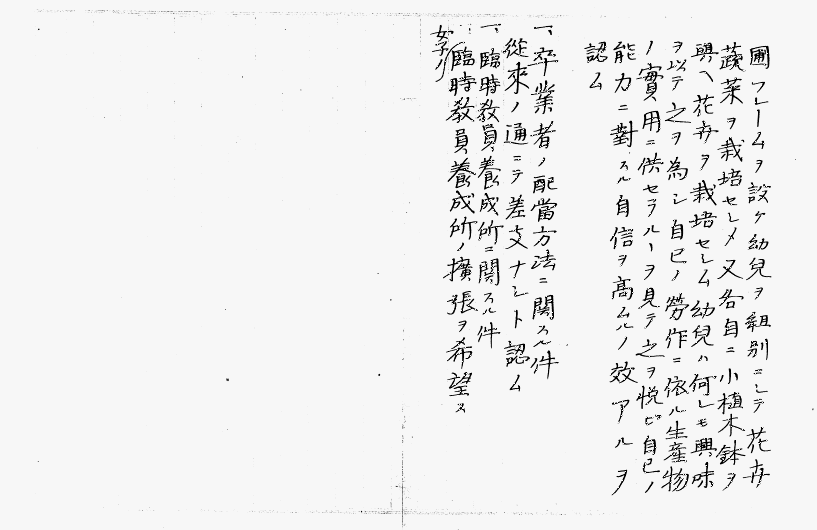 圃フレームヲ設ケ幼兒ヲ組別ニシテ花卉
蔬菜ヲ栽培セシメ又各自ニ小植木鉢ヲ
與ヘ花卉ヲ栽培セシム幼兒ハ何レモ興味
ヲ以テ之ヲ為シ自己ノ勞作ニ依ル生産物
ノ實用ニ供セラルヽヲ見テ之ヲ悦ビ自己ノ
能力ニ對スル自信ヲ高ムルノ效アルヲ
認ム
一、卒業者ノ配當方法ニ関スル件
從來ノ通ニテ差支ナシト認ム
一、臨時教員養成所ニ関スル件
臨時教員養成所ノ擴張ヲ希望ス
女子ノ